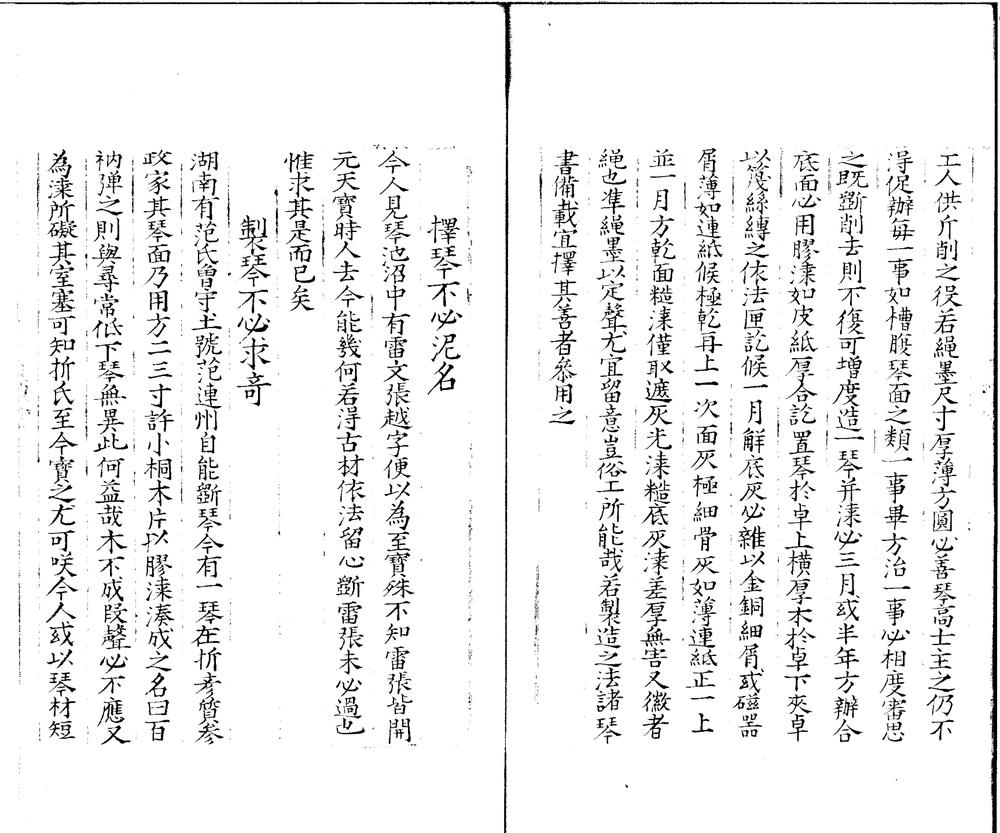 工人供斤削之役若繩墨尺寸厚薄方圓必善琴高士主之仍不
淂促辦每一事如槽腹琴面之類一事畢方治一事必相度審思
之既斲削去則不復可增度造一琴并漆必三月或半年方辦合
底面必用膠漆如皮紙厚合訖置琴扵卓上橫厚木扵卓下夾卓
以篾絲縳之依法匣訖候一月觧底灰必雜以金銅細屑或磁噐
屑薄如連紙候極乾再上一次面灰極細骨灰如薄連紙正一上
並一月方乾面糙漆僅取遮灰光漆糙底灰漆差厚無害又徽者
繩也凖繩墨以定聲尤宜留意豈俗工所能哉若製造之法諸琴
書備載宜擇其善者叅用之
擇琴不必泥名
今人見琴池沼中有雷文張越字便以為至寶殊不知雷張皆開
元天寶時人去今能幾何若淂古材依法留心斲雷張未必過也
惟求其是而已矣
製琴不必求竒
湖南有范氏曽守土號范連州自能斲琴今有一琴在折彦質叅
政家其琴面乃用方二三寸許小桐木片以膠漆湊成之名曰百
衲弹之則與尋常低下琴無異此何益哉木不成叚聲必不應又
為漆所礙其室塞可知折氏至今寶之尤可咲今人或以琴材短